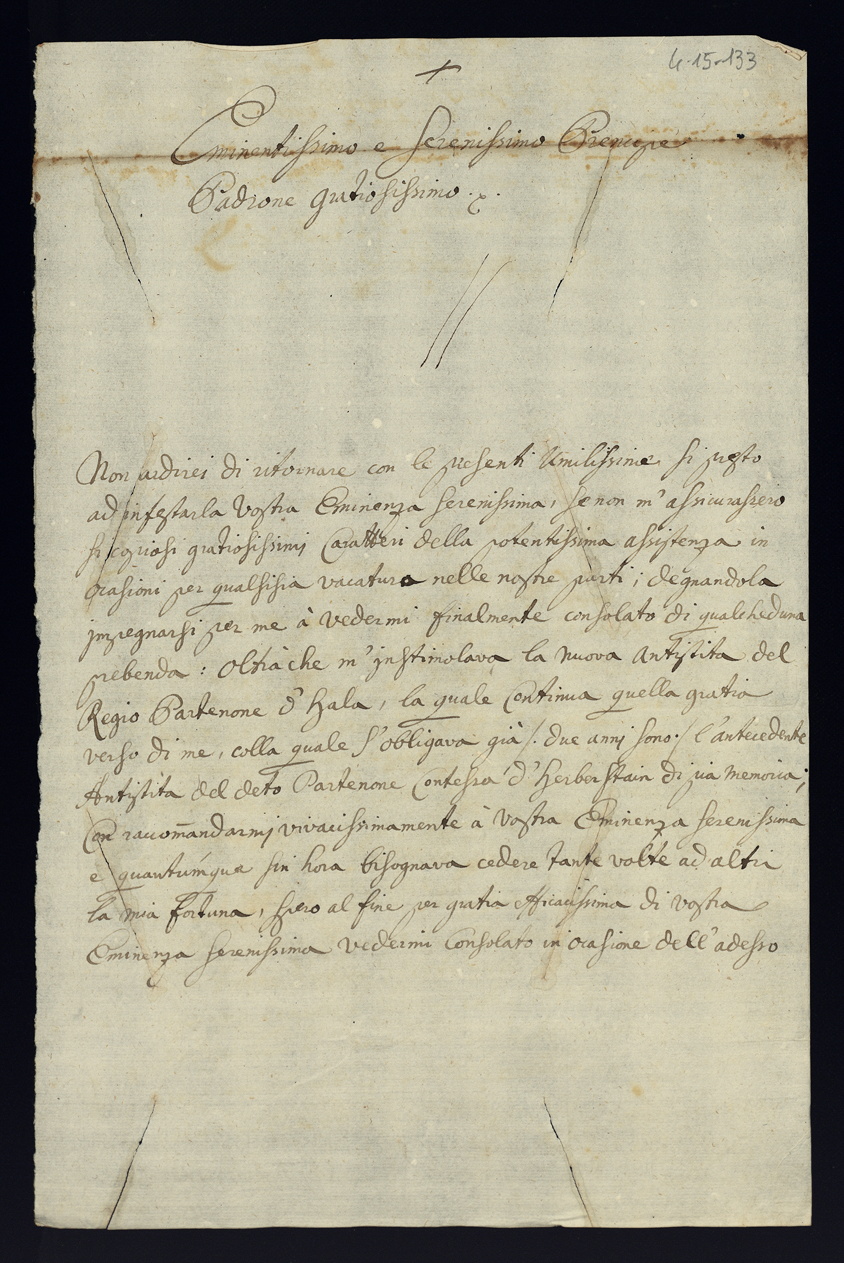 4-15-133
+
Eminentissimo e Serenissimo Prencipe
Padrone gratiosissimo.
Non ardirei di ritornare con le presenti Umilissime si presto
ad infestarla Vostra Eminenza Serenissima, se non m'assicurassero
si copiosi gratiosissimj Caratteri della potentissima assistenza in
ocasioni per qualsisia vacatura nelle nostre parti; degnandola
jmpegnarsi per me à vedermi finalmente consolato di qualcheduna
prebenda: Oltrà che m'jnstimolava la nuova Antistita del
Regio Partenone d'Hala, la quale Continua quella gratia
verso di me, colla quale s'obligava già /: due annj sono :/ l'antecedente
Antistita del deto Partenone Contessa d'Herberstain di pia memoria;
Con raccom̄andarmj vivacissimamente à Vostra Eminenza Serenissima
e quantumque sin hora bisognava cedere tante volte ad altri
la mia fortuna, spero al fine per gratia efficacissima di Vostra
Eminenza Serenissima vedermi Consolato in ocasione dell'adesso